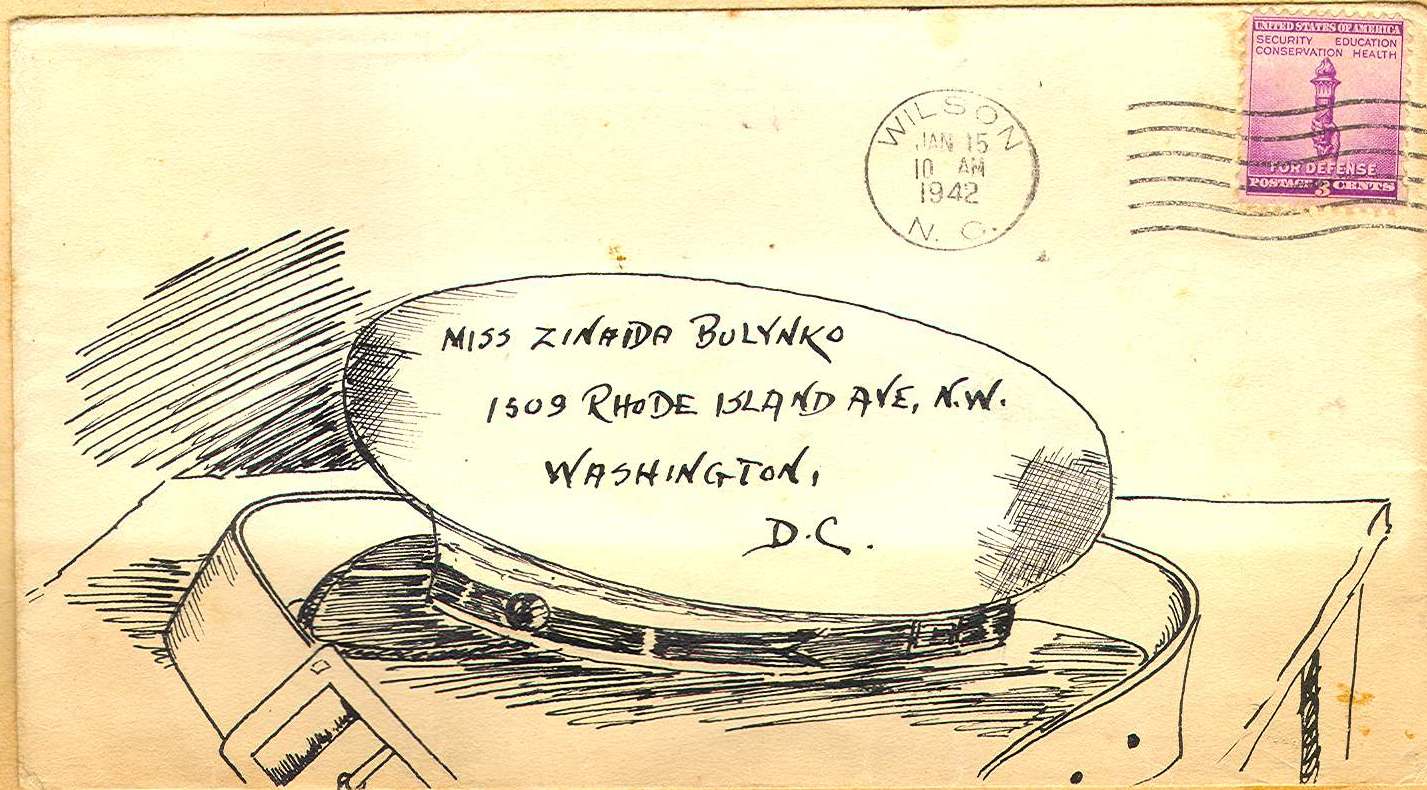 UNITED STATES OF AMERICA
SECURITY EDUCATION
CONSERVATION HEALTH
FOR DEFENSE
POSTAGE 3 CENTS
WILSON
JAN 15
10 AM
1942
N. C.
MISS ZINAIDA BULYNKO
1509 RHODE ISLAND AVE, N.W.
WASHINGTON,
D.C.